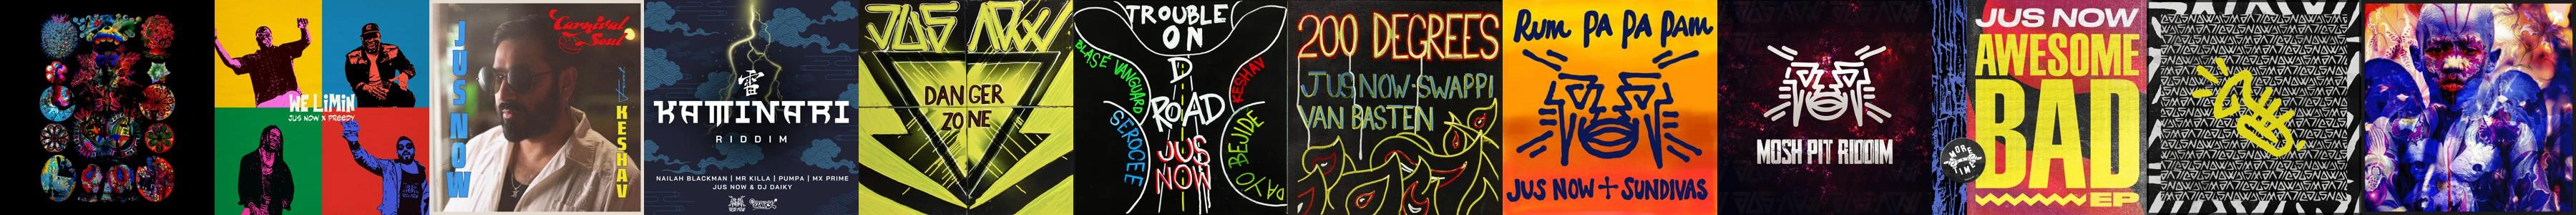 WE LiMiN
JUS NOW X PREEDY
JUS NOW
Carnival
Soul
KESHAV
雷
KAMINARI
RIDDIM
NAILAH BLACKMAN | MR KILLA | PUMPA | MX PRIME
JUS NOW & DJ DAIKY
JUS NOW
DANGER
ZONE
TROUBLE
ON
D
ROAD
JUS
NOW
BLASE VANGUARD
SEROCEE
KESHAV
DAYO BEJIDE
200 DEGREES
JUS NOW-SWAPPI
VAN BASTEN
Rum PA PA PAM
JUS NOW + SUNDIVAS
MOSH PIT RIDDIM
JUS NOW
AWESOME
BAD
EP
MORE
TIME